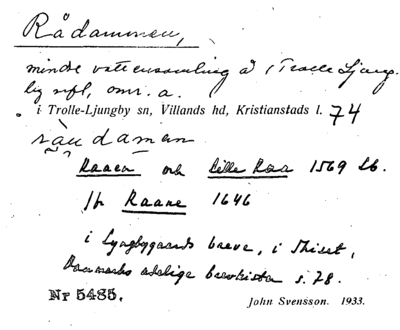 Rådammen,
mindre vattensamling å Trolle Ljung-
by sn, omr. a.
i Trolle-Ljungby sn, Villands hd, Kristianstads l. 74
råu damen
Raaen och Lille Raa 1569 Lb.
Raane 1646
i Lyngbygaards breve, i Thiset,
Danmarks adelige brevkister s. 78.
Nr 5485.
John Svensson. 1933.